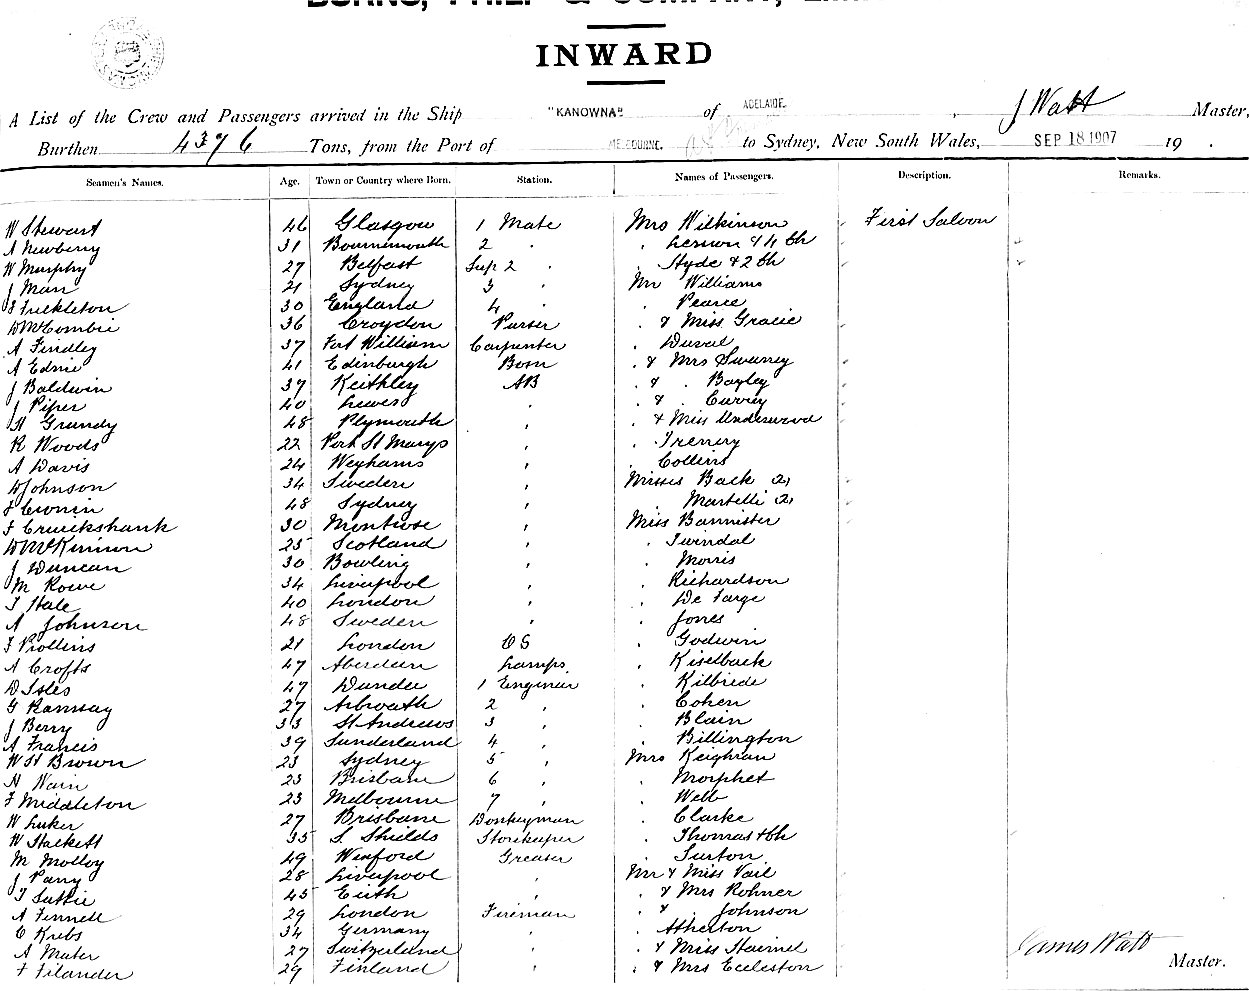 BURNS, PHILP & COMPANY,
INWARD
A List of the Crew and Passengers arrived in the Ship "KANOWNA" of ADELAIDE, J Watt Master,
Burthen 4376 Tons, from the Port of MELBOURNE. to Sydney, New South Wales, SEP 18 1907 19 .
Seamen's Names. Age. Town or Country where Born. Station. Names of Passengers. Description. Remarks.
W Stewart 46 Glasgow 1 Mate Mrs Wilkinson First Saloon
A Newberry 31 Bournemouth 2 " & 4 Ch
W Murphy 27 Belfast Sup 2 " " Hyde & 2 Ch
J Marr 21 Sydney 3 " Mr Williams
30 England 4 " " Pearce
D McCombie 36 Croydon Purser " & Miss Gracie
A Findley 37 Fort William Carpenter " Duval
A Ednie 41 Edinburgh Bosn " & Mrs Swaney
J Baldwin 37 Keithley AB " & " Bayley
J Piper 40 Lewes " " & " Currey
H Grundy 48 Plymouth " " & Miss Underwood
R Woods 22 Port St Marys " " Trenery
A Davis 24 Weyhams " " Collins
D Johnson 34 Sweden " Misses Back (2)
J Cronin 48 Sydney " Martelli (2)
F Cruickshank 30 Montrose " Miss Bannister
D McKinnon 25 Scotland " " Swindal
J Duncan 30 Bowling " " Morris
M Rowe 34 Liverpool " " Richardson
T Hale 40 London " " De Farge
A Johnson 48 Sweden " " Jones
F Rollins 21 London OS " Godwin
A Crofts 47 Aberdeen Lamps " Kiselback
D Isles 47 Dundee 1 Engineer " Kilbride
G Ramsay 27 Arbroath 2 " " Cohen
J Berry 33 St Andrews 3 " " Blain
A Francis 39 Sunderland 4 " " Billington
W H Brown 23 Sydney 5 " Mrs Keighran
H Wain 23 Brisbane 6 " " Morphet
F Middleton 23 Melbourne 7 " " Webb
W Luker 27 Brisbane Donkeyman " Clarke
W Hackett 35 S Shields Storekeeper " Thomas & Ch
M Molloy 49 Wexford Greaser " Surton
J Parry 28 Liverpool " Mr & Miss Vail
T Suttie 45 Leith " " & Mrs Rohner
A Fennell 29 London Fireman " & " Johnson
C Krebs 34 Germany " " Atherton
A Mater 27 Switzerland " " & Miss
F Filander 29 Finland " " & Mrs Eccleston
James Watt
Master.